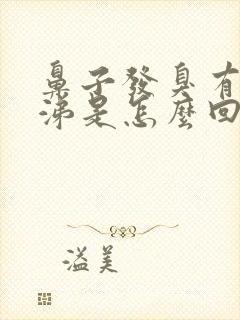 鼻子發臭有
涕是怎麼回
溢美